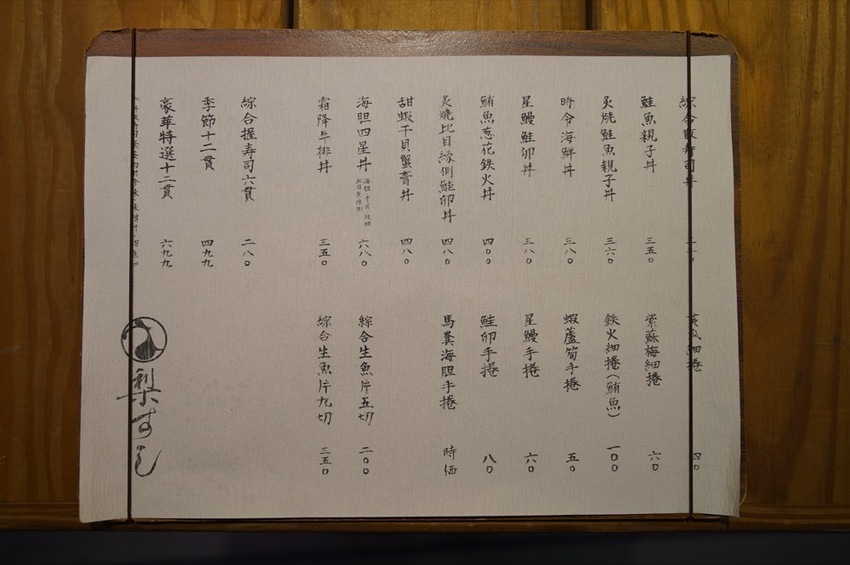 綜合散壽司丼 二二〇
鮭魚親子丼 三五〇
炙燒鮭魚親子丼 三六〇
時令海鮮丼 三八〇
星鰻鮭卵丼 三八〇
鮪魚蔥花鉄火丼 四〇〇
炙燒比目緣側鮭卵丼 四八〇
甜蝦干貝蟹膏丼 四八〇
海胆四星丼 六八〇
海胆、干貝、鮭卵
比目魚緣側
霜降牛排丼 三五〇
綜合握壽司六貫 二八〇
季節十二貫 四九九
豪華特選十二貫 六九九
黃瓜細捲 四〇
紫蘇梅細捲 六〇
鉄火細捲（鮪魚） 一〇〇
蝦蘆筍手捲 五〇
星鰻手捲 六〇
鮭卵手捲 八〇
馬糞海胆手捲 時価
綜合生魚片五切 二〇〇
綜合生魚片九切 三五〇
梨すし